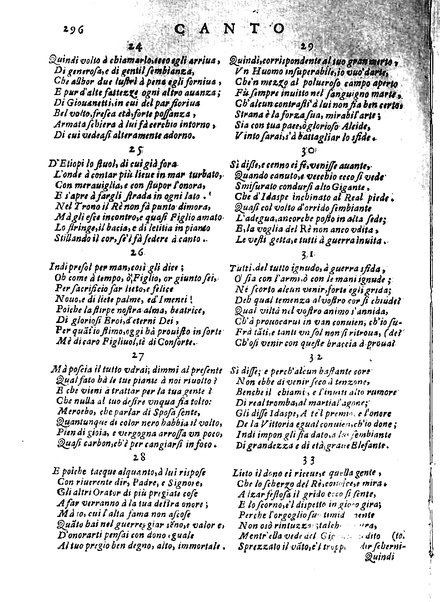 296 CANTO
24
Quindi volto à chiamarlo, ecco egli arriva,
Di generosa, e di gentil sembianza,
C'hà ben due lustri à pena egli forniva,
E pur d'alte fattezze ogni altro avanza;
Di Giovanetti, in cui del par fioriva
Bel volto, fresca età, forte possanza,
Armata schiera à lui fà cerchio intorno,
Di cui vedeasi alteramente adorno.
25
D'Etiopi lo stuol, di cui già fora
L'onde à contar più lieve in mar turbato,
Con meraviglia, e con stupor l'onora,
E s'apre à fargli strada in ogni lato.
Nel Trono il Rè non fà punto dimora,
Mà gli esce incontro, e quasi Figlio amato
Lo stringe, il bacia, e di letitia in pianto
Stillando il cor, se'l fà sedere à canto.
26
Indi presol per man, così gli dice;
Oh come à tempo, ò Figlio, or giunto sei,
Per sacrificio far lieto, e felice
Novo, e di liete palme, ed'Imenei!
Poiche la stirpe nostra alma, beatrice,
Di gloriosi Eroi, d'eterni Dei,
Per quãt'io stimo, oggi hà provisto in sorte
Mè di caro Figliuol, tè di Consorte.
27
Mà poscia il tutto vdrai; dimmi al presente
Qual fato bà le tue piante à noi rivolto?
E che vieni à trattar per la tua gente?
Che nulla al tuo desire vnqua fia tolto:
Meroebo, che parlar di Sposa sente,
Quantunque di color nero habbia il volto,
Pien di gioia, e vergogna arrossa vn poco,
Quasi carbon, ch'è per cangiarsi in foco.
28
E poiche tacque alquanto, à lui rispose
Con riuerente dir, Padre, e Signore,
Gli altri Orator di più pregiate cose
A' far verranno à la tua destra onore;
Mà io, cui l'alta fama non ascose
Quãto hai nel guerreggiar seno, e valor e,
D'onorarti pensai con dono eguale
Al tuo pregio ben degno, alto, immortale.
29
Quindi, corrispondente al tuo gran merto,
Vn Huomo insuperabile, io vuo' darte,
Ch'en mezzo al polueroso campo aperto
Fù sempre inuitto nel sanguigno marte,
Ch'alcun contrasti à lui non fia ben certo,
Strana è la forza sua, mirabil'arte;
Sia con tua pace, ò glorioso Alcide,
Vinto sarai, s'à battagliar lo sfide.
30
Sì disse; e cenno ei fè, venisse auante,
Quando canuto, e vecchio ecco si vede
Smisurato condursi alto Gigante,
Che d'Idaspe inchinato al Real piede;
Quasi col volto à l'orrido sembiante
L'adegua, ancorche posto in alta sede;
E, la voglia del Rè non anco vdita,
Le vesti getta, e tutti à guerra inuita.
31
Tutti, del tutto ignudo, à guerra sfida,
O' sia con l'armi, ò con le mani ignude;
Nè scorto alcun venir, forte egli grida;
Deh qual temenza al vostro cor si chiude?
Qual viltà nel vostro animo s'annida,
Ch'à prouocarui in van conuien, ch'io su-
Frà tãti, e tanti vn sol non si ritroua, (de?
Ch'osi venir con queste braccia à proua?
32
Sì disse; e perch'alcun bastante core
Non ebbe di venir seco à tenzone,
Benche il chiami, e l'inuiti alto rumore
Di real trombe al martial'agone;
Gli disse Idaspe, A tè'l premio, e l'onore
De la Vittoria egual conuien, ch'io done;
Indi impon gli fia dato, a lui sembiante
Di grandezza, e di età, graue Elefante.
33
Lieto il dono ei riceue, e quella gente,
Che lo scherzo del Rè, conosce, e mira
Alzar festosa il grido ecco si sente,
E lo scorno, e'l dispetto in gioco gira;
Perche l'orgoglio suo
Non osò rintuzzar
Mentr'ella vede del Gig (to.
Sprezzato il vãto, e'l tro scherni-
Quindi